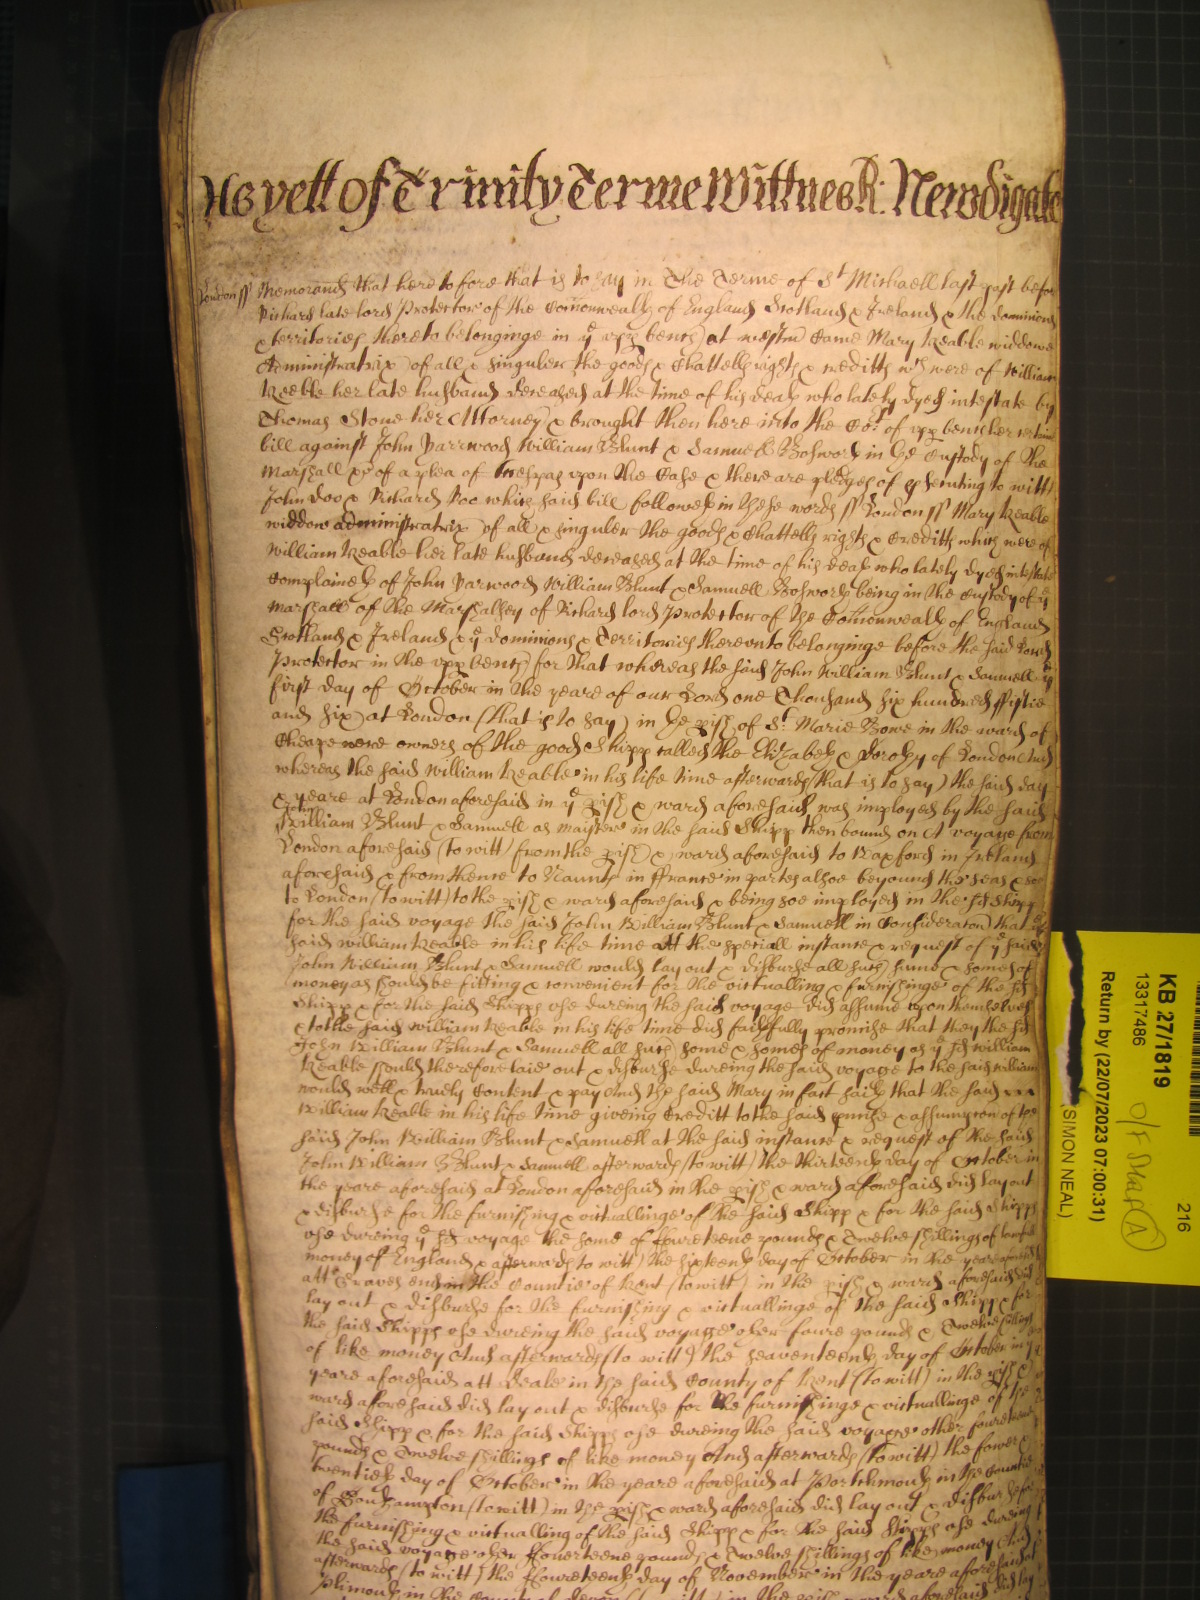 As yett of Trinity Terme Wittnes R: Newdigate
London ss Memorand that heretofore that is to say in The Terme of St Michaell last past before
Richard late lord Protector of the Comonwealth of England Scotland & Ireland & the dominions
& territories thereto belonginge in ye upp bench at westm Came Mary Keable widdowe
Administratrix of all & singuler the goods & Chattells rights & creditts wch were of William
Keeble her late husband deceased at the time of his death who lately dyed intestate by
Thomas Stone her Attorney & brought then here into the Cot of upp bench her certaine
bill against John Yarwood William Blunt & Samuell Bosworth in the Custody of the
Marshall &c of a plea of trespas upon the Case & there are pledges of prosecuting to witt
John Doo & Richard Roo which said bill followeth in these words ss London ss Mary Keable
widdow administratrix of all & singuler the goods & Chattells rights & Creditts which were of
William Keable her late husband deceased at the time of his death who lately dyed intestate
Complaineth of John Yarwood William Blunt & Samuell Bosworth being in the Custody of ye
Marshall of the Marshalsey of Richard lord Protector of the Comonwealth of England
Scotland & Ireland & ye dominions & Territories thereunto belonginge before the said Lord
Protector in the upp bench for that whereas the said John William Blunt & Samuell ye
first day of October in the yeare of our Lord one Thousand six hundred fiftie
and six at London (that is to say) in the pish of St Marie Bowe in the ward of
Cheape were owners of the good Shipp called the Elizabeth & Dorothy of London And
whereas the said William Keable in his life time afterwards (that is to say) the said day
& yeare at London aforesaid in ye pish & ward aforesaid was imployed by the said
John
William Blunt & Samuell as maister in the said Shipp then bound on A voyage from
London aforesaid (to witt) from the pish & ward aforesaid to Waxford in Ireland
aforesaid & from thence to Naunts in ffrance in partes alsoe beyound the seas & soe
to London (to witt) to the pish & ward aforesaid & being soe imployed in the sd Shipp
for the said voyage the said John William Blunt & Samuell in Consideraton that ye
said william Keable in his life time att the speciall instance & request of ye said
John William Blunt & Samuell would lay out & disburse all such sume & somes of
money as should be fitting & convenient for the victualling & furnishinge of the sd
Shipp & for the said Shipps use dureing the said voyage did assume upon themselves
& to the said William Keable in his life time did faithfully promise that they the sd
John William Blunt & Samuell all such some & somes of money as ye sd William
Keable should therefore laie out & disburse dureing the said voyage to the said William
would well & truely Content & pay And the said Mary in fact saith that the said
William Keable in his life time giveing Creditt to the said pmise & assumpcon of the
said John William Blunt & Samuell at the said instance & request of the said
John William Blunt & Samuell afterwards (to witt) the thirteenth day of October in
the yeare aforesaid at London aforesaid in the pish & ward aforesaid did lay out
& disburse for the furnishing & victuallinge of the said Shipp & for the said Shipps
use dureing ye sd voyage the some of foureteene pounds & Twelve shillings of lawfull
money of England & afterwards (to witt) the sixteenth day of October in the yeare aforesaid
att Graves end in the Countie of Kent (to witt) in the pish & ward aforesaid did
lay out & disburse for the furnishing & victuallinge of the said Shipp & for
the said Shipps use dureing the said voyage other foure pounds & Twelve shillings
of like money And afterwards (to witt) the seaventeenth day of October in ye
yeare aforesaid att Deale in the said County of Kent (to witt) in the pish &
ward aforesaid did lay out & disburse for the furnishinge & victuallinge of the
said Shipp & for the said Shipps use dureing the said voyage other foureteene
pounds & Twelve shillings of like money And afterwards (to witt) the fower &
twentieth day of October in the yeare aforesaid at Portchmouth in the Countie
of Southampton (to witt) in the pish & ward aforesaid did lay out & disburse for
the furnishing & victualling of the said Shipp & for the said Shipps use dureing
the said voyage other fouerteene pounds & Twelve shillings of like money And
afterwards (to witt) the foureteenth day of November in the yeare aforesaid at
Plimouth in the County of Devon (to witt) in the pish & ward aforesaid did lay
KB 27/1819
13317486
216
O/F Map A
Return by (22/07/2023 07:00:31)
(SIMON NEAL)